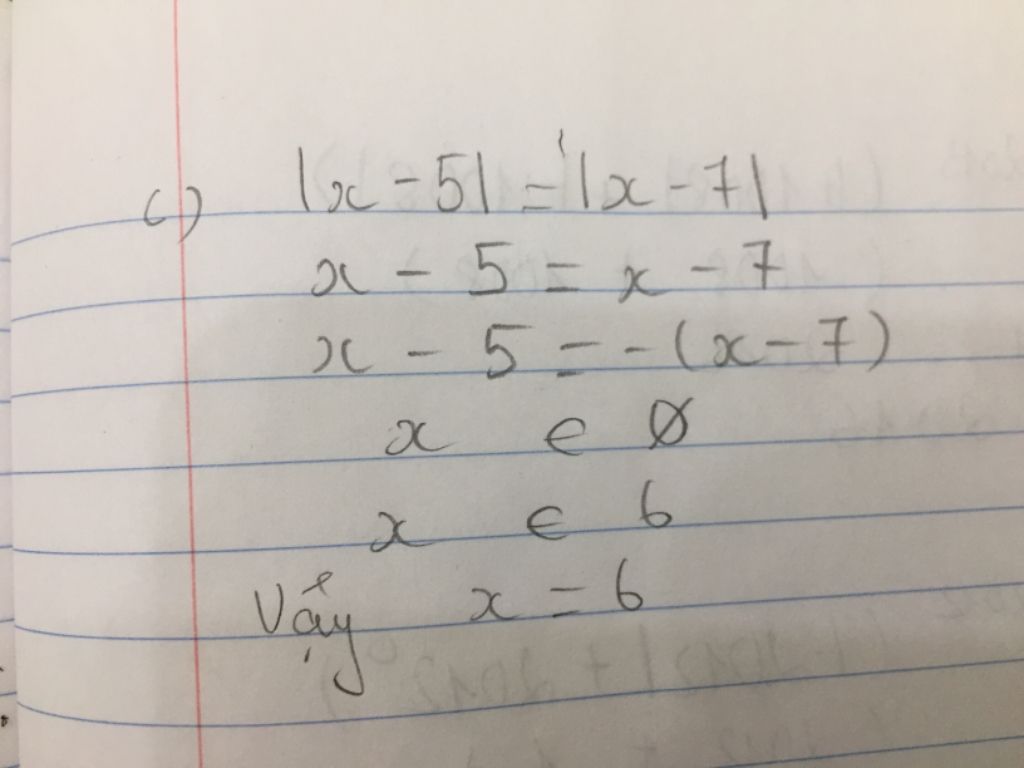 c) |x - 5| = |x - 7|
x - 5 = x - 7
x - 5 = - (x - 7)
x ∈ ∅
x ∈ 6
Vậy x = 6